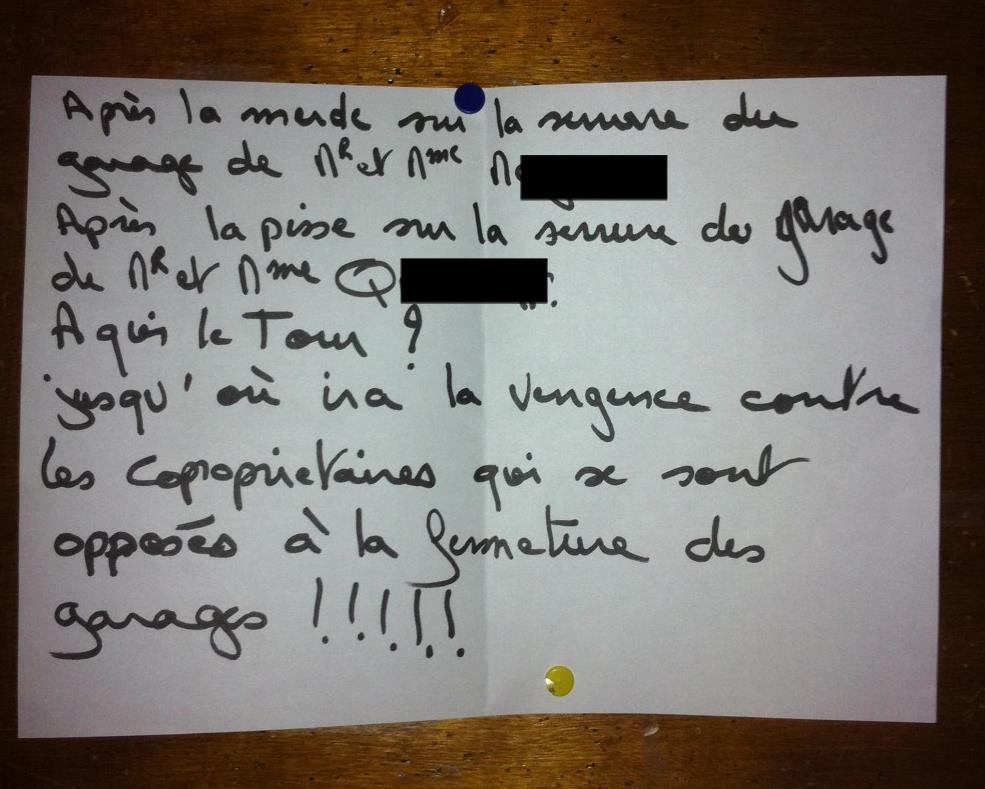 Après la merde sur la serrure du
garage de Mr et Mme
Après la pisse sur la serrure du garage
de Mr et Mme Q
A qui le Tour ?
jusqu'où ira la vengence contre
les coproprietaires qui se sont
opposés à la fermeture des
garages !!!!!